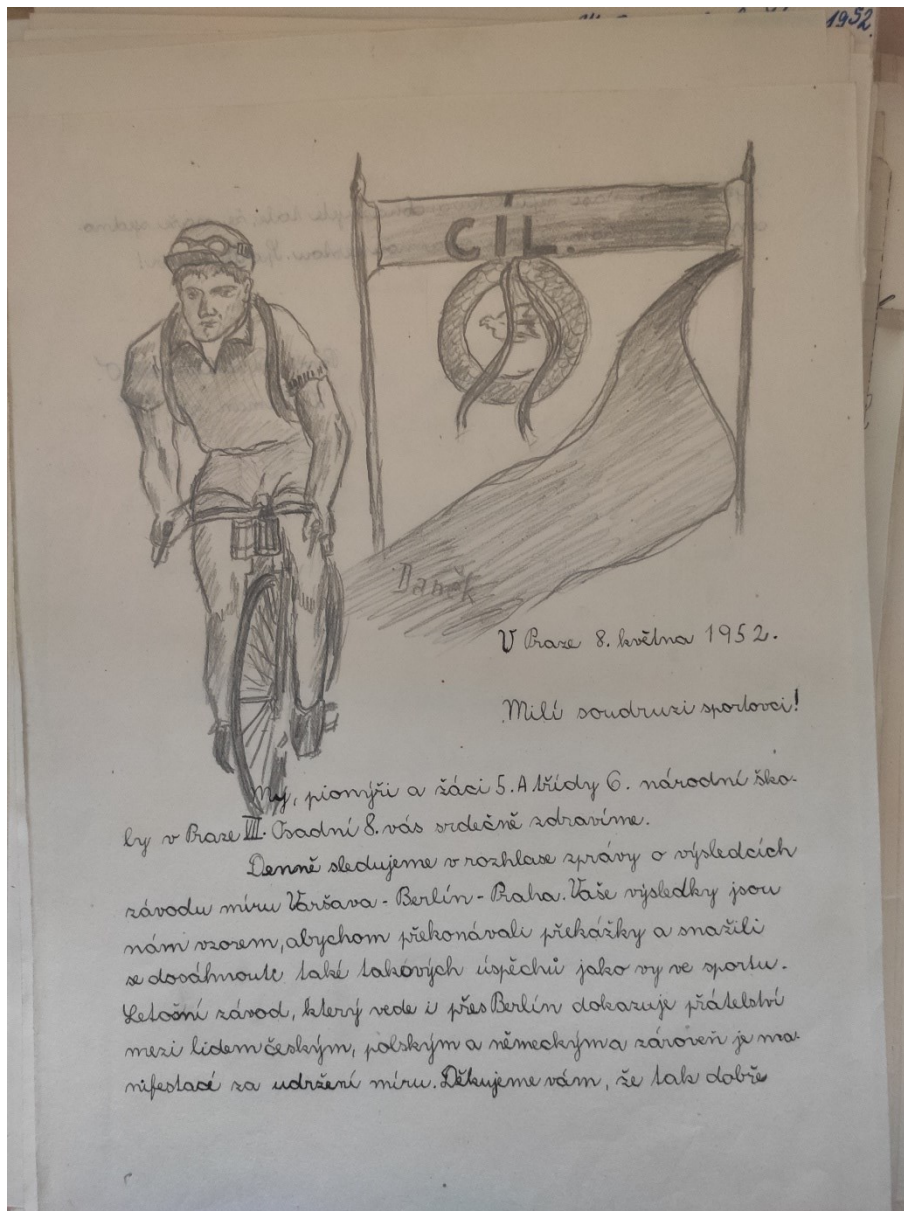 1952.
CÍL.
Daněk
V Praze 8. května 1952.
Milí soudruzi sportovci!
My, pionýři a žáci 5. A třídy 6. národní ško-
ly v Praze VII. Osadní 8. vás srdečně zdravíme.
Denně sledujeme v rozhlase zprávy o výsledcích
závodu míru Varšava - Berlín - Praha. Vaše výsledky jsou
nám vzorem, abychom překonávali překážky a snažili
se dosáhnouti také takových úspěchů jako vy ve sportu.
Letošní závod, který vede i přes Berlín dokazuje přátelství
mezi lidem českým, polským a německým a zároveň je ma-
nifestací za udržení míru. Děkujeme vám, že tak dobře